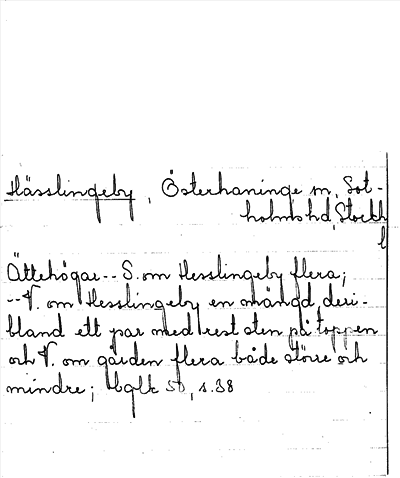 Hässlingeby, Österhaninge sn, Sot-
holms hd, Stockh
l
Ättehögar -- S. om Hesslingeby flera;
-- V. om Hesslingeby en mängd, deri-
bland ett par med rest sten på toppen
och V. om gården flera både större och
mindre; Ubglk 50, s. 38